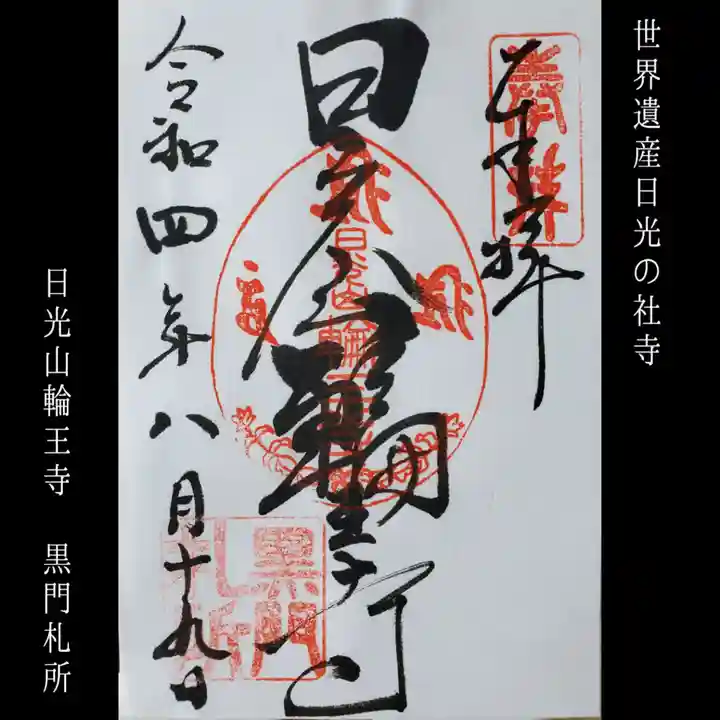 世界遺産日光の社寺
奉拝
奉拝
日光山輪王寺
日光山輪王寺
令和四年八月十九日
黒門札所
日光山輪王寺 黒門札所